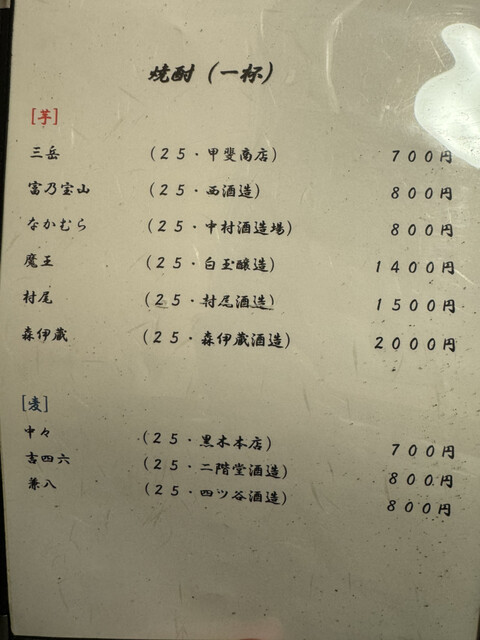 焼酎（一杯）
[芋]
三岳 （２５・甲斐商店） ７００円
富乃宝山 （２５・西酒造） ８００円
なかむら （２５・中村酒造場） ８００円
魔王 （２５・白玉醸造） １４００円
村尾 （２５・村尾酒造） １５００円
森伊蔵 （２５・森伊蔵酒造） ２０００円
[麦]
中々 （２５・黒木本店） ７００円
吉四六 （２５・二階堂酒造） ８００円
兼八 （２５・四ツ谷酒造） ８００円